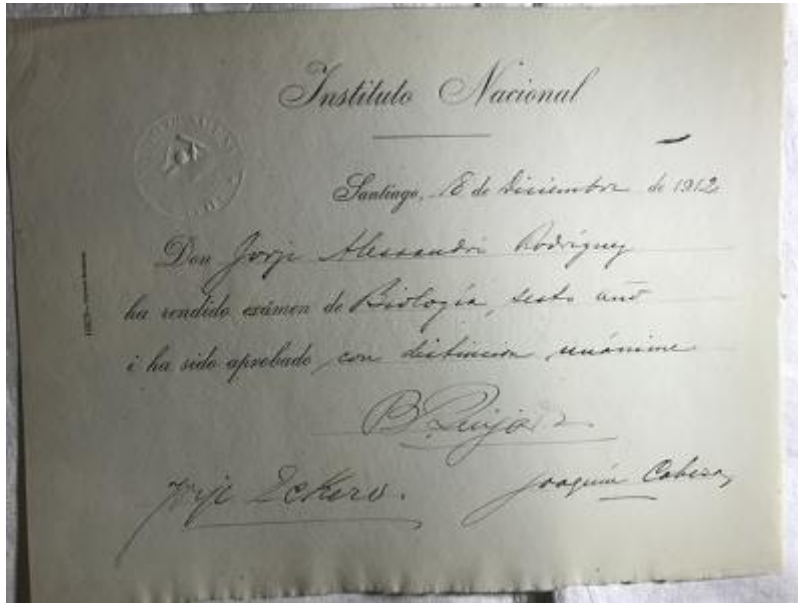 Instituto Nacional
Santiago, 18 de Diciembre de 1912
Don Jorje Alessandri Rodríguez
ha rendido exámen de Biología, sesto año
i ha sido aprobado con distincion unánime
Joaquín Cabezas